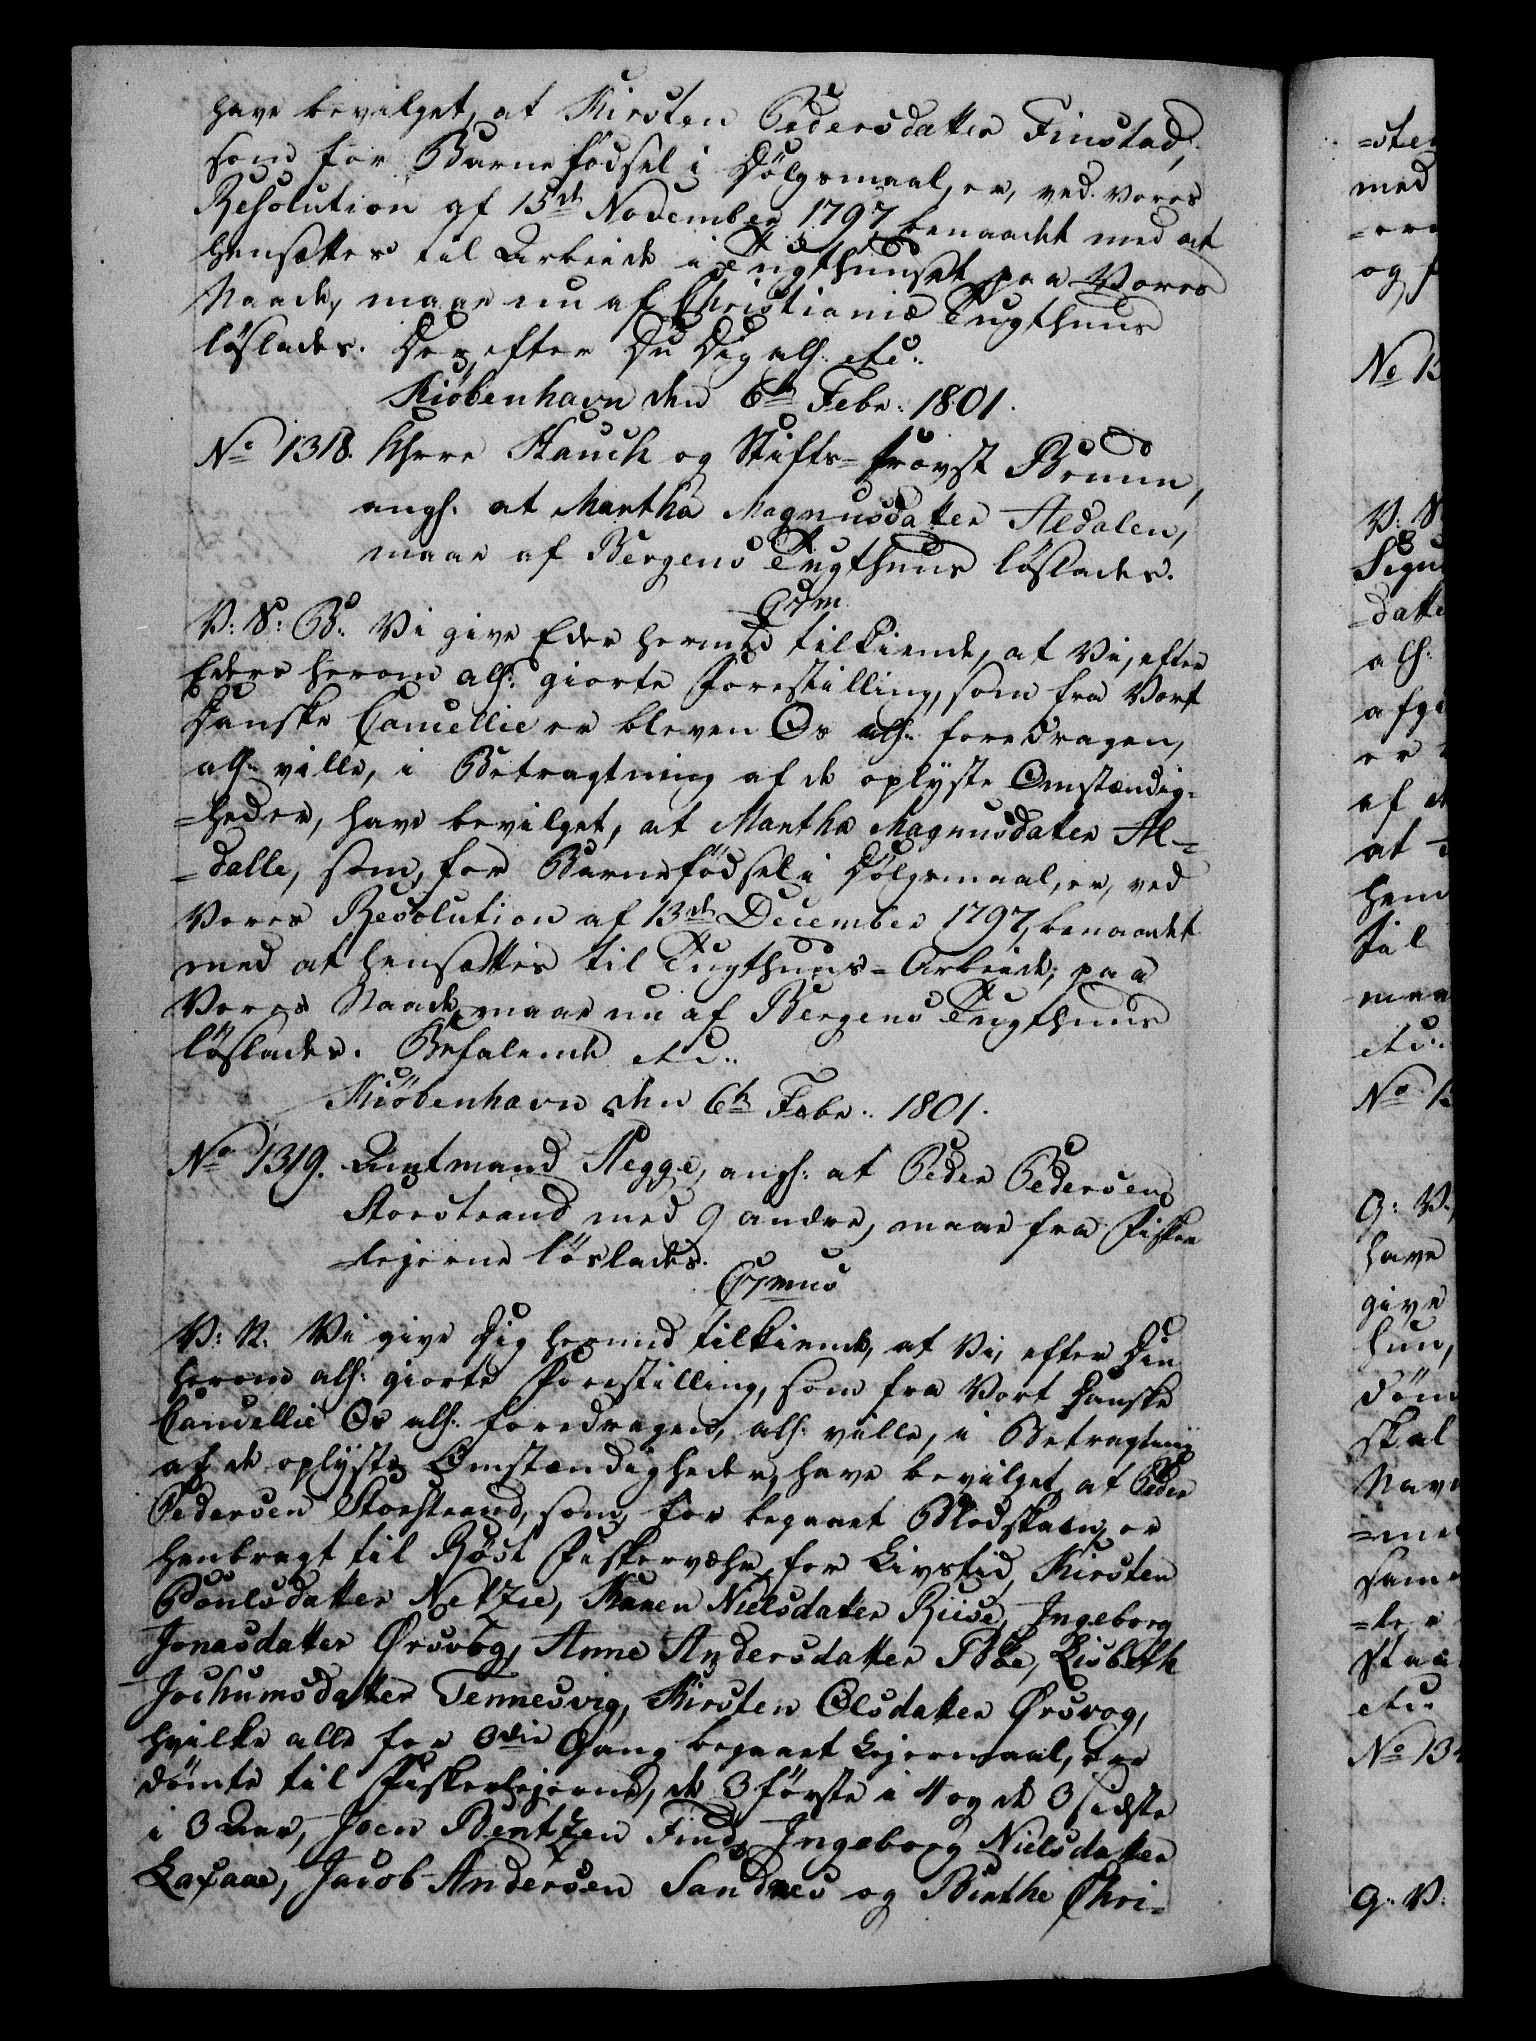 have bevilget, at Kirsten Pedersdatter Finstad,
som for Barnefödsel i Dölgsmaal, er, ved Vores
Resolution af 15de November 1797 benaadet med at
hensættes til Arbeide i Tugthuuset paa Vores
Naade, maae nu af Christianiæ Tugthuus
löslades. Derefter Du Dig alh: etc:
Kiöbenhavn den 6te Febr: 1801.
No 1318. Hrr Hauch og Stifts-Provst Bruun,
angh: at Martha Magnusdatter Aldalen,
maae af Bergens Tugthuus löslades.
C7m
V: S: B: Vi give Eder hermed tilkiende, at Vi, efter
Eders herom alh: giorte Forestilling, som fra Vort
Danske Cancellie er bleven Os alh: foredragen,
alh: ville, i Betragtning af de oplyste Omstændig-
=heder, have bevilget, at Martha Magnusdatter Al-
=dalle, som, for Barnefödsel i Dölgsmaal, er, ved
Vores Resolution af 13de December 1797, benaadet
med at hensættes til Tugthuus-Arbeide, paa
Vores Naade, maae nu af Bergens Tugthuus
löslades. Befalende etc:
Kiöbenhavn den 6te Febr: 1801.
No 1319. Amtmand Hegge, angh: at Peder Pedersen
Storstrand med 9 andre, maae fra Fisker
=lejerne löslades.
C7mus
V: N: Vi give Dig hermed tilkiende, at Vi, efter Din
herom alh: giorte Forestilling, som fra Vort Danske
Cancellie Os alh: foredragen, alh: ville, i Betragtning
af de oplyste Omstændigheder, have bevilget, at Peder
Pedersen Storstrand, som, for begaaet Blodskam, er
henbragt til Röst Fiskervære for Livstid, Kirsten
Poulsdatter Netzie, Karen Nielsdatter Riise, Ingeborg
Jonasdatter Ørsvog, Anne Andersdatter Bøe, Lisbeth
Jochumsdatter Tennesvig, Kirsten Olsdatter Ørsvog,
hvilke alle for 3die Gang begaaet Lejermaal, ere
dömte til Fiskerlejerne, de 3 förste i 4 og de 3 sidste
i 3 Aar, Joen Bentzen Find, Ingeborg Nielsdatter
Laxaae, Jacob Andersen Sandnes og Birthe Chri-